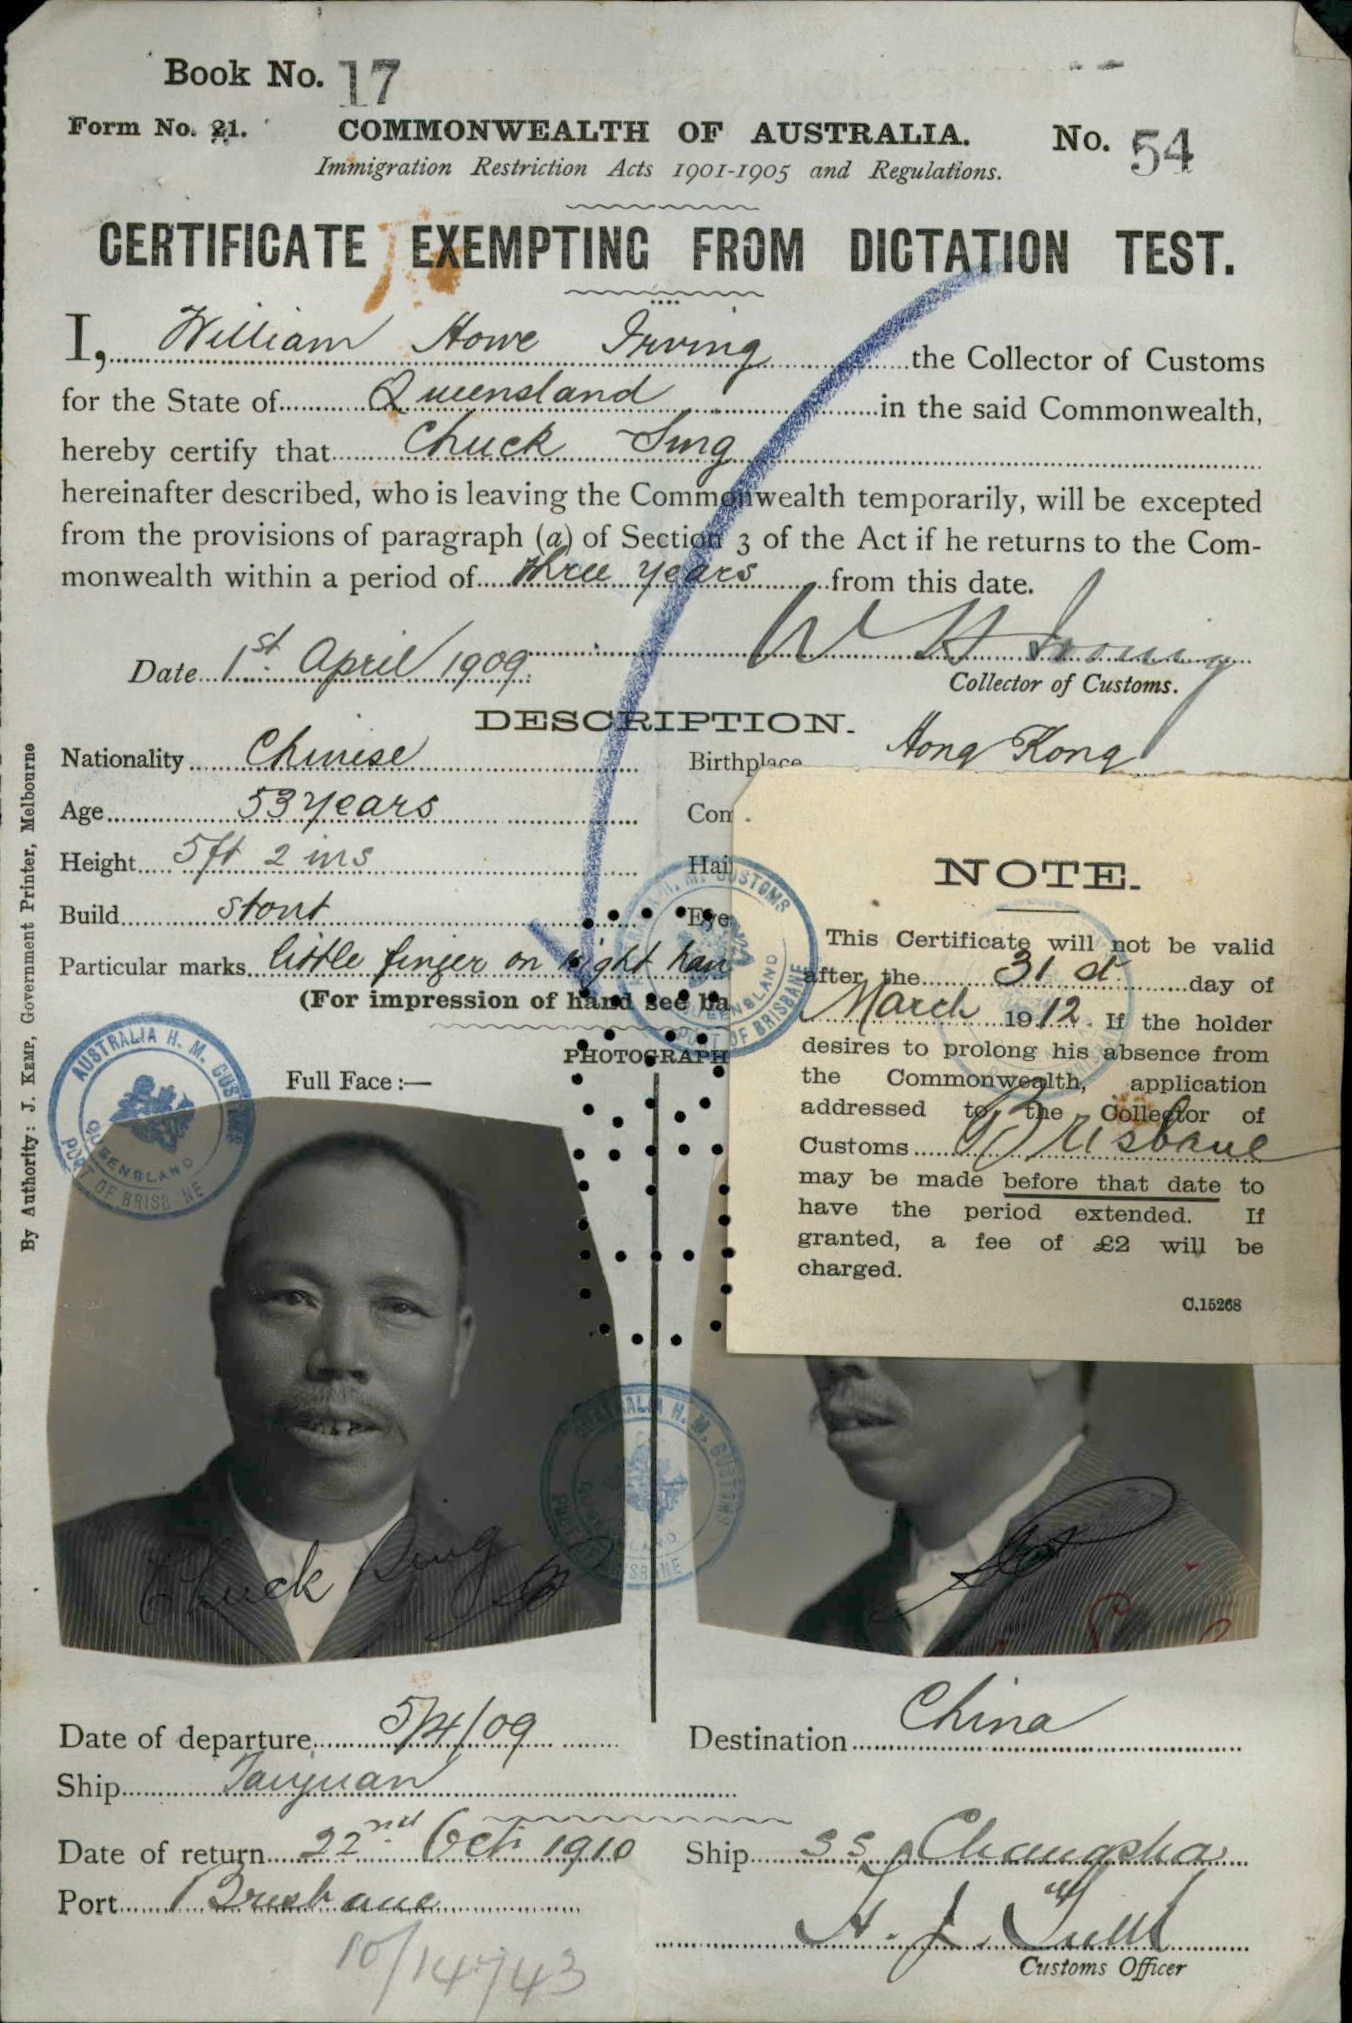 Book No. 17
Form No. 21. COMMONWEALTH OF AUSTRALIA. No. 54
Immigration Restriction Acts 1901-1905 and Regulations.
CERTIFICATE EXEMPTING FROM DICTATION TEST.
I, William Howe Irving the Collector of Customs
for the State of Queensland in the said Commonwealth,
hereby certify that Chuck Sing
hereinafter described, who is leaving the Commonwealth temporarily, will be excepted
from the provisions of paragraph (a) of Section 3 of the Act if he returns to the Com-
monwealth within a period of three years from this date.
W H Irving
Date 1st April 1909
Collector of Customs.
DESCRIPTION.
Nationality Chinese Birthplace Hong Kong
Age 53 years
Height 5 ft 2 ins
Build stout
Particular marks little finger on right
(For impression of hand see
PHOTOGRAPH
Full Face:—
NOTE.
This Certificate will not be valid
after the 31st day of
March 1912. If the holder
desires to prolong his absence from
the Commonwealth, application
addressed to the Collector of
Customs Brisbane
may be made before that date to
have the period extended. If
granted, a fee of £2 will be
charged.
C.15268
AUSTRALIA H. M. CUSTOMS
QUEENSLAND
PORT OF BRISBANE
H. M. CUSTOMS
QUEENSLAND
PORT OF BRISBANE
AUSTRALIA H. M. CUSTOMS
PORT BRISBANE
Chuck Sing
Date of departure 5/4/09 Destination China
Ship Taiyuan
Date of return 22nd Oct. 1910 Ship SS Changsha
Port Brisbane
Customs Officer
10/14743
By Authority: J. KEMP, Government Printer, Melbourne